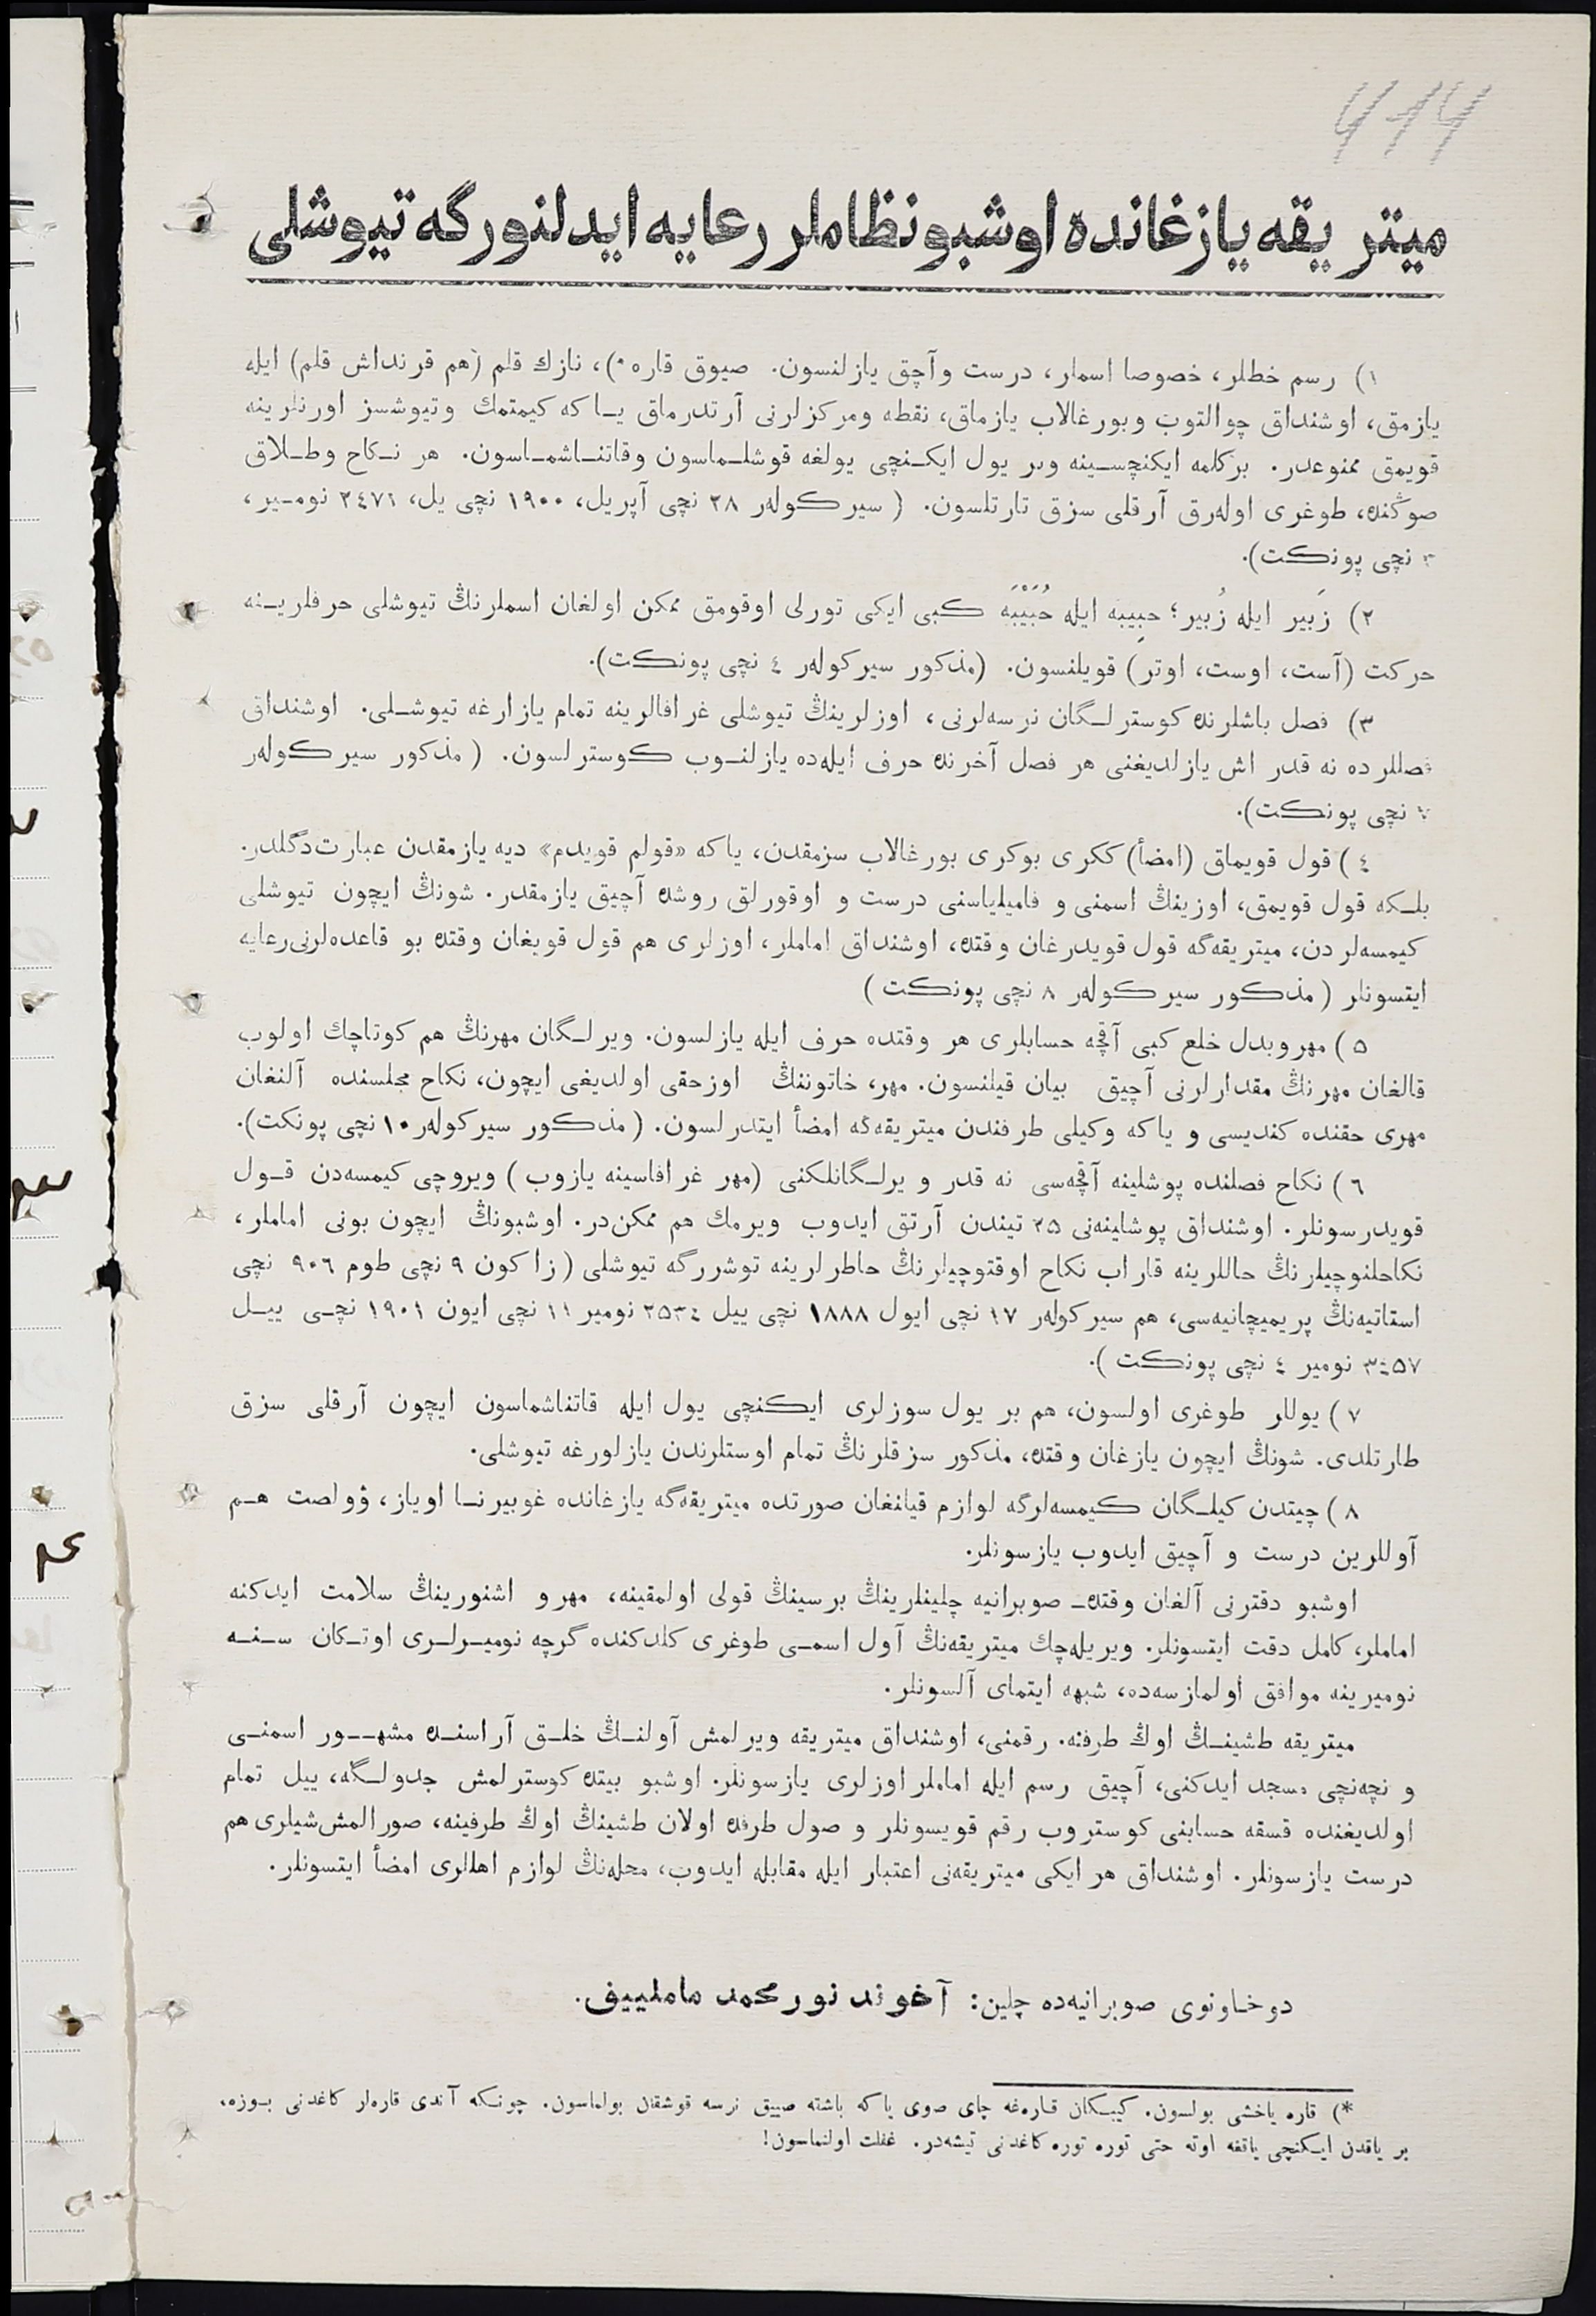 414
ميتريقه يازغانده اوشبو نظاملر رعايه ايدلنورگه تيوشلى
١) رسم خطلر، خصوصا اسملر، درست وآچق يازلنسون. صيوق قاره *)، نازك قلم (هم قرنداش قلم) ايله
يازمق، اوشنداق چوالتوب وبورغالاب يازماق، نقطه ومركزلرنى آرتدرماق يـاكه كيمتمك وتيوشسز اورنلرينه
قويمق ممنوعدر. بركلمه ايكنچسـينه وبر يول ايكـنچى يولغه قوشلـماسون وقاتنـاشمـاسون. هر نـكاح وطـلاق
صوڭنده، طوغرى اولەرق آرقلى سزق تارتلسون. ( سيركولەر ٢٨ نچى آپريل، ١٩٠٠ نچى يل، ٢٤٧١ نومـير،
٣ نچى پونكت).
٢) زَبير ايله زُبير؛ حبِيبه ايله حُبَيْبَه كبى ايكى تورلى اوقومق ممكن اولغان اسملرنڭ تيوشلى حرفلريـنه
حركت (آست، اوست، اوتر) قويلنسون. (مذكور سيركولەر ٤ نچى پونكت).
٣) فصل باشلرنده كوسترلـگان نرسەلرنى، اوزلرينڭ تيوشلى غرافالرينه تمام يازارغه تيوشـلى. اوشنداق
فصللرده نه قدر اش يازلديغنى هر فصل آخرنده حرف ايلەده يازلنـوب كوسترلسون. ( مذكور سيركولەر
٧ نچى پونكت).
٤ ) قول قويماق (امضأ) ككرى بوكرى بورغالاب سزمقدن، ياكه «قولم قويدم» ديه يازمقدن عبارت دگلدر.
بلـكه قول قويمق، اوزينڭ اسمنى و فاميلياسنى درست و اوقورلق روشده آچيق يازمقدر. شونڭ ايچون تيوشلى
كيمسەلردن، ميتريقەگه قول قويدرغان وقتده، اوشنداق اماملر، اوزلرى هم قول قويغان وقتده بو قاعدەلرنى رعايه
ايتسونلر ( مذكور سيركولەر ٨ نچى پونكت )
٥ ) مهر وبدل خلع كبى آقچه حسابلرى هر وقتده حرف ايله يازلسون. ويرلـگان مهرنڭ هم كوتاچك اولوب
قالغان مهرنڭ مقدارلرنى آچيق بيان قيلنسون. مهر، خاتوننڭ اوزحقى اولديغى ايچون، نكاح مجلسنده آلنغان
مهرى حقنده كنديسى و ياكه وكيلى طرفندن ميتريقەگه امضأ ايتدرلسون. ( مذكور سيركولەر ١٠ نچى پونكت).
٦ ) نكاح فصلنده پوشلينه آقچەسى نه قدر و يرلـگانلكنى (مهر غرافاسينه يازوب ) ويروچى كيمسەدن قـول
قويدرسونلر. اوشنداق پوشلينەنى ٢٥ تيندن آرتق ايدوب ويرمك هم ممكن در. اوشبونڭ ايچون بونى اماملر،
نكاحلنوچيلرنڭ حاللرينه قاراب نكاح اوقتوچيلرنڭ خاطرلرينه توشررگه تيوشلى ( زاكون ٩ نچى طوم ٩٠٦ نچى
استاتيەنڭ پريميچانيەسى، هم سيركولەر ١٧ نچى ايول ١٨٨٨ نچى ييل ٢٥٣٤ نومير ١١ نچى ايون ١٩٠١ نچـى ييـل
٣٤٥٧ نومير ٤ نچى پونكت ).
٧ ) يوللر طوغرى اولسون، هم بر يول سوزلرى ايكنچى يول ايله قاتناشماسون ايچون آرقلى سزق
طارتلدى. شونڭ ايچون يازغان وقتده، مذكور سزقلرنڭ تمام اوستلرندن يازلورغه تيوشلى.
٨ ) چيتدن كيلـگان كيمسەلرگه لوازم قيلنغان صورتده ميتريقەگه يازغانده غوبيرنـا اوياز، ۋولصت هـم
آوللرين درست و آچيق ايدوب يازسونلر.
اوشبو دفترنى آلغان وقتدهـ صوبرانيه چلينلرينڭ برسينڭ قولى اولمقينه، مهر و اشنورينڭ سلامت ايدكنه
اماملر، كامل دقت ايتسونلر. ويريلەچك ميتريقەنڭ آول اسمـى طوغرى كلدكنده گرچه نوميـرلـرى اوتـكان سـنـه
نوميرينه موافق اولمازسەده، شبهه ايتماى آلسونلر.
ميتريقه طشينـڭ اوڭ طرفنه. رقمنى، اوشنداق ميتريقه ويرلمش آولنـڭ خلـق آراسنـده مشهـور اسمنـى
و نچەنچى مسجد ايدكنى، آچيق رسم ايله اماملر اوزلرى يازسونلر. اوشبو بيتده كوسترلمش جدولـگه، ييل تمام
اولديغنده قسقه حسابنى كوستروب رقم قويسونلر و صول طرفده اولان طشينڭ اوڭ طرفينه، صورالمش شيلرى هم
درست يازسونلر. اوشنداق هر ايكى ميتريقەنى اعتبار ايله مقابله ايدوب، محلەنڭ لوازم اهللرى امضأ ايتسونلر.
دوخاونوى صوبرانيەده چلين: آخوند نورمحمد ماملييف.
*) قاره ياخشى بولسون. كيبـكان قارەغه چاى صوى ياكه باشته صييق نرسه قوشقان بولماسون. چونـكه آندى قارەلر كاغدنى بـوزه،
بر ياقدن ايـكنچى ياققه اوته حتى توره توره كاغدنى تيشەدر. غفلت اولنماسون!